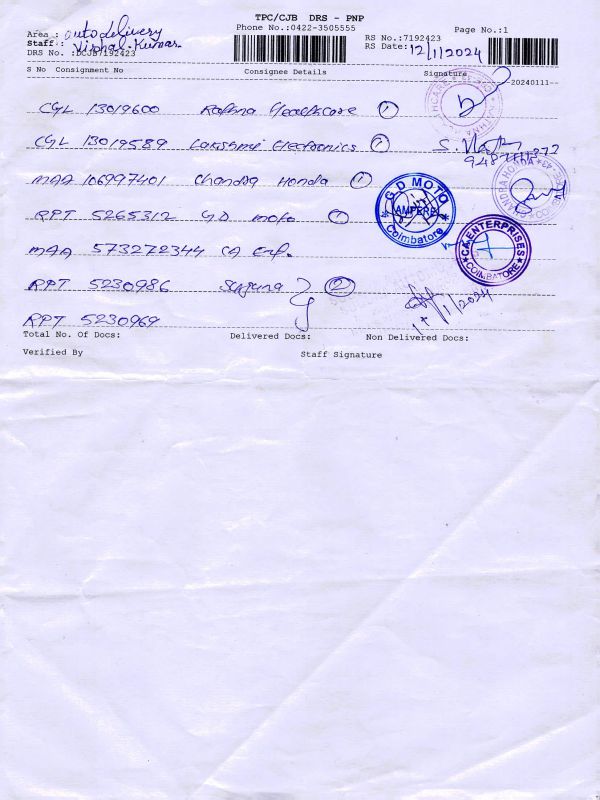 TPC/CJB DRS - PNP
Phone No.:0422-3505555
Page No.:1
Area : autodelivery
RS No.:7192423
Staff.: Vishal.Kumar
RS Date: 12/1/2024
DRS No. :DCJB7192423
S No Consignment No Consignee Details Signature
20240111
CGL 13019600 Healthcare 1
CGL 13019589 Lakshmi Electronics 1
MAA 106997401 Chandra Honda 1
RPT 5265312 G.D moto 1
G D MOTO
AMPERE
Coimbatore
MAA 573272344 CA Enp.
CA ENTERPRISES
COIMBATORE
RPT 5230986 Suguna 2
RPT 5230969
Total No. Of Docs: Delivered Docs: Non Delivered Docs:
Verified By Staff Signature